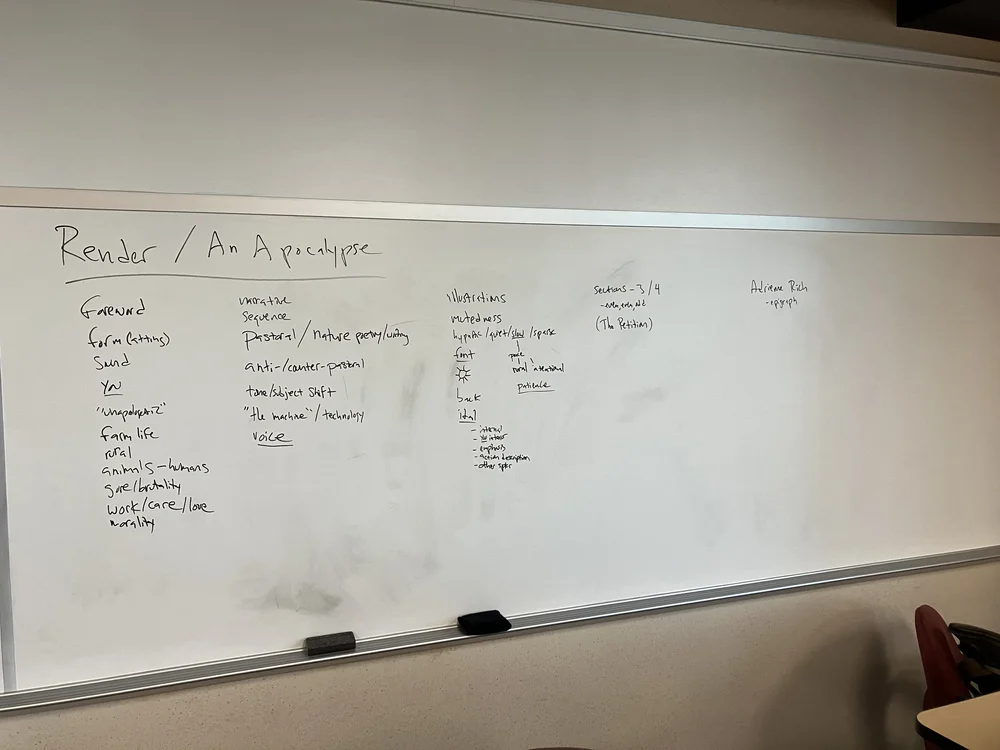 Render / An Apocalypse
Foreword
form (
Sound
You
"unapologetic"
farm life
rural
animals – humans
gore/brutality
work/care/love
morality
narrative
sequence
Pastoral / nature poetry/writing
anti-/counter-pastoral
tone/subject shift
"the machine" / technology
voice
illustrations
mutedness
hypnotic/quiet/slow/sparse
font
pace
rural intentional
patience
back
ital
- internal
- You
- emphasis
- action description
- other spkr
Sections - 3/4
- even, even, odd
(The Petition)
Adrienne Rich
- epigraph